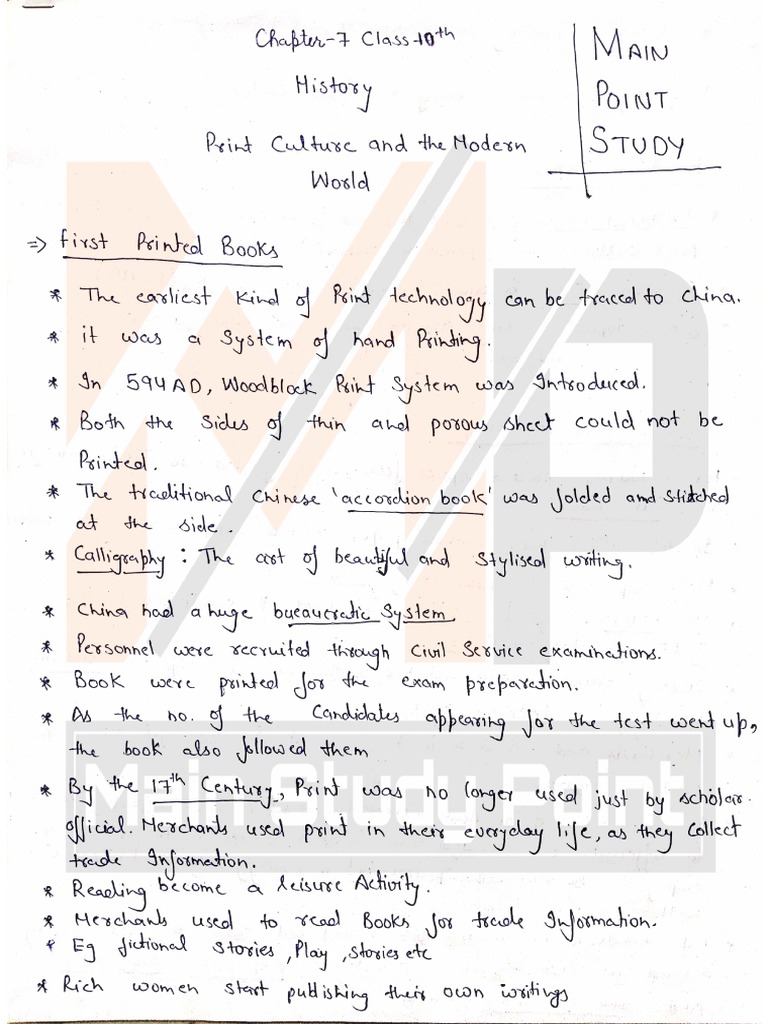 Chapter-7 Class-10th
MAIN
POINT
STUDY
History
Print Culture and the Modern
World
=> first Printed Books
* The earliest kind of Print technology can be traced to China.
* it was a System of hand Printing.
* In 594 AD, Woodblock Print System was Introduced.
* Both the sides of thin and porous sheet could not be
Printed.
* The traditional Chinese 'accordion book' was folded and stitched
at the side.
* Calligraphy : The art of beautiful and stylised writing.
* China had a huge bueaucratic System
* Personnel were recruited through Civil Service examinations.
* Book were printed for the exam preparation.
* As the no. of the Candidates appearing for the test went up,
the book also followed them
* By the 17th Century, Print was no longer used just by scholar-
official. Merchants used print in their everyday life, as they collect
trade Information.
* Reading become a leisure Activity.
* Merchants used to read Books for trade Information.
* Eg fictional stories, Play, stories etc
* Rich women start publishing their own writings
MP
Main Study Point